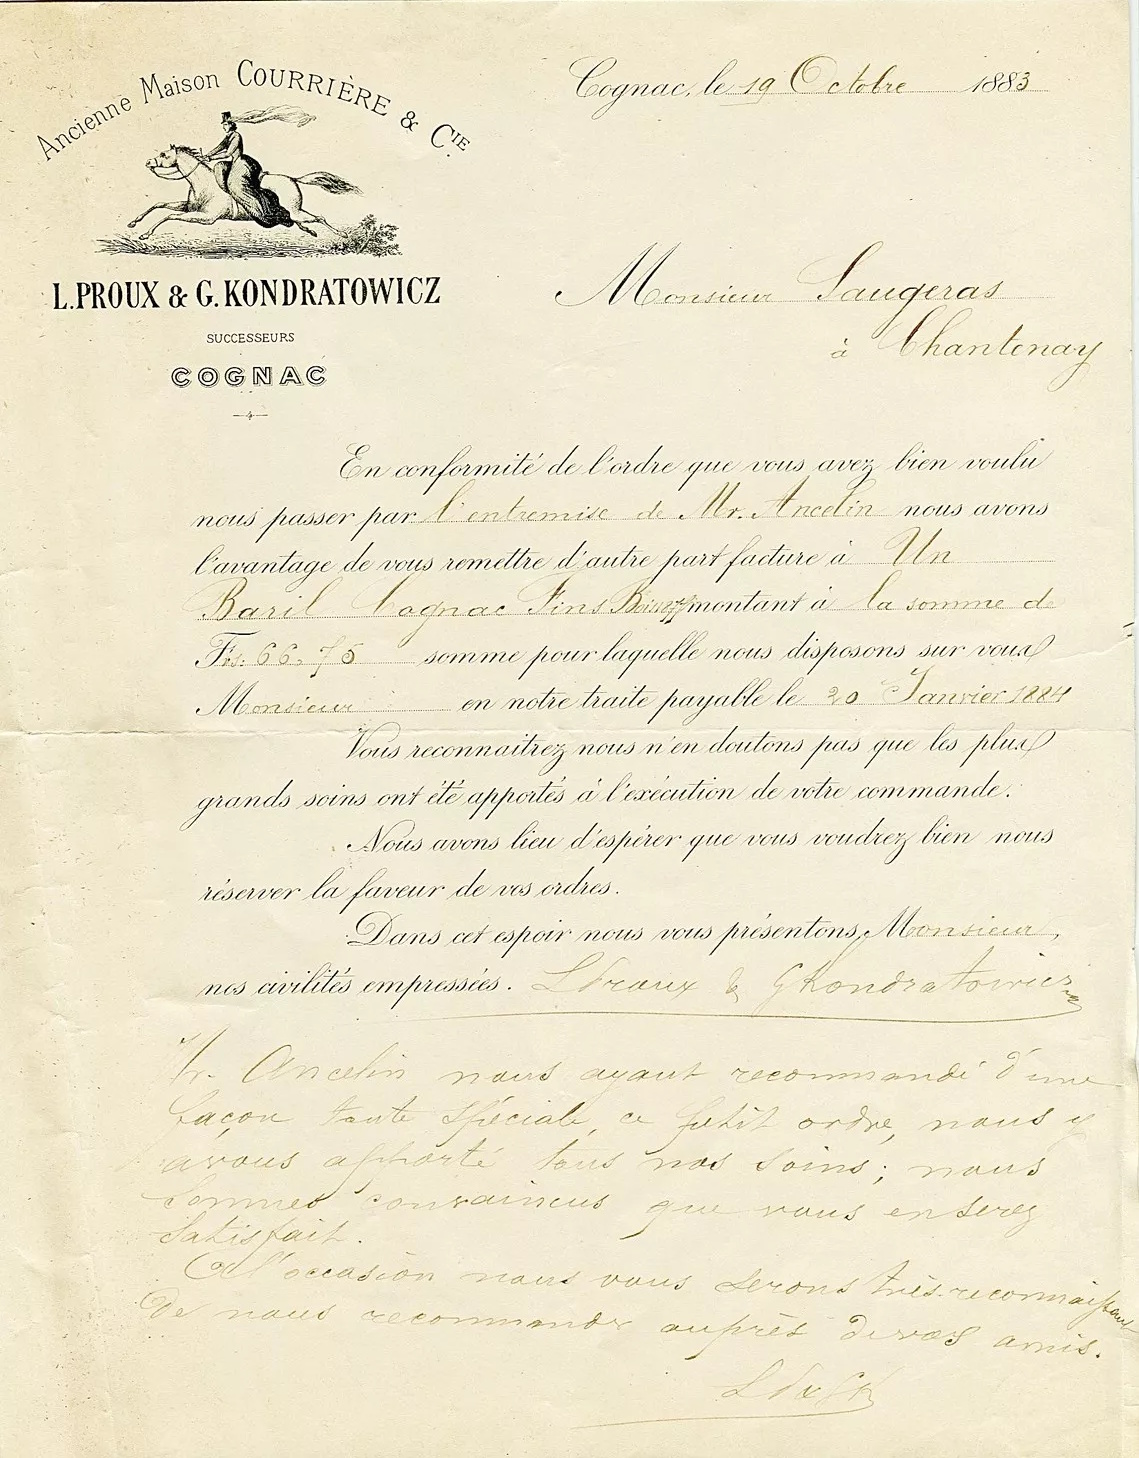 Ancienne Maison COURRIÈRE & CIE.
L. PROUX & G. KONDRATOWICZ
SUCCESSEURS
COGNAC
Cognac, le 19 Octobre 1883
Monsieur Laugeras
à Chantenay
En conformité de l'ordre que vous avez bien voulu
nous passer par l'entremise de Mr. Ancelin nous avons
l'avantage de vous remettre d'autre part facture à Un
Baril Cognac Fins Bois montant à la somme de
Frs: 66,75 somme pour laquelle nous disposons sur vous
Monsieur en notre traite payable le 20 Janvier 1884
Vous reconnaitrez nous n'en doutons pas que les plus
grands soins ont été apportés à l'exécution de votre commande.
Nous avons lieu d'espérer que vous voudrez bien nous
réserver la faveur de vos ordres.
Dans cet espoir nous vous présentons, Monsieur,
nos civilités empressées. LProux & GKondratowicz
Mr. Ancelin nous ayant recommandé d'une
façon toute spéciale, ce petit ordre, nous y
avons apporté tous nos soins; nous
sommes convaincus que vous en serez
satisfait.
A l'occasion nous vous serons très-reconnaissants
de nous recommander auprès de vos amis.